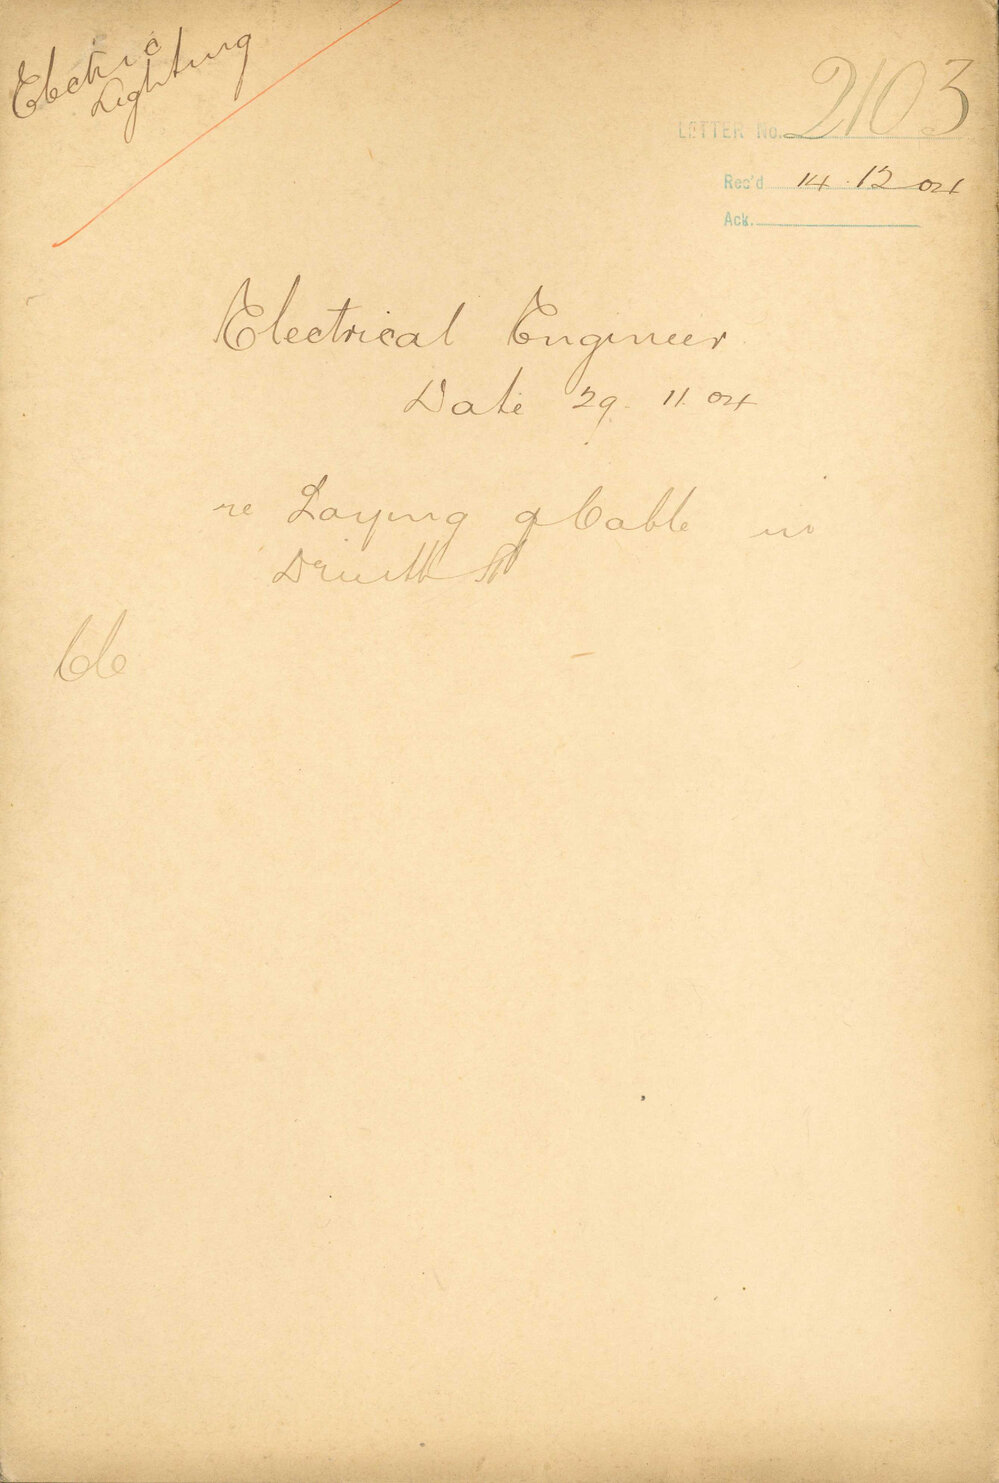 Electric
Lighting
LETTER No. 2103
Rec'd 14.12 04
Ack.
Electrical Engineer
Date 29. 11. 04
re Laying of Cable in
Druitt St